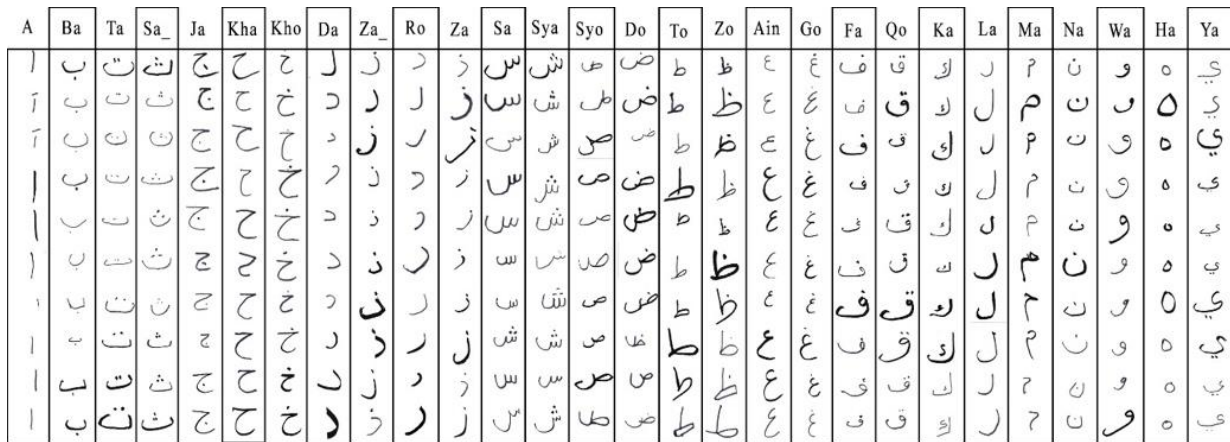 A Ba Ta Sa_ Ja Kha Kho Da Za_ Ro Za Sa Sya Syo Do To Zo Ain Go Fa Qo Ka La Ma Na Wa Ha Ya
ا ب ت ث ج ح خ د ذ ر ز س ش ص ض ط ظ ع غ ف ق ك ل م ن و ه ي
آ ب ت ث ج ح خ د ذ ر ز س ش ض ط ظ ع غ ف ق ك ل م ن و ه ي
آ ب ت ث ج ح خ د ذ ر ز س ش ص ض ط ظ ع غ ف ق ك ل م ن و ه ي
ا ب ت ث ج ح خ د ذ ر ز س ش ص ض ط ظ ع غ ف ق ك ل م ن و ه ي
ا ب ت ث ج ح خ د ذ ر ز س ش ص ض ط ظ ع غ ف ق ك ل م ن و ه ي
ا ب ت ث ج ح خ د ذ ر ز س ش ص ض ط ظ ع غ ف ق ك ل م ن و ه ي
ا ب ت ث ج ح خ د ذ ر ز س ش ص ض ط ظ ع غ ف ق ك ل م ن و ه ي
ا ب ت ث ج ح خ د ذ ر ز ش ش ص ط ظ ع غ ف ق ك ل م ن و ه ي
ا ب ت ث ج ح خ د ذ ر ز س س ص ص ط ظ ع غ ف ق ك ل م ن و ه ي
ا ب ت ث ج ح خ د ذ ر ز س ش ض ط ظ ع غ ف ق ك ل م ن و ه ي